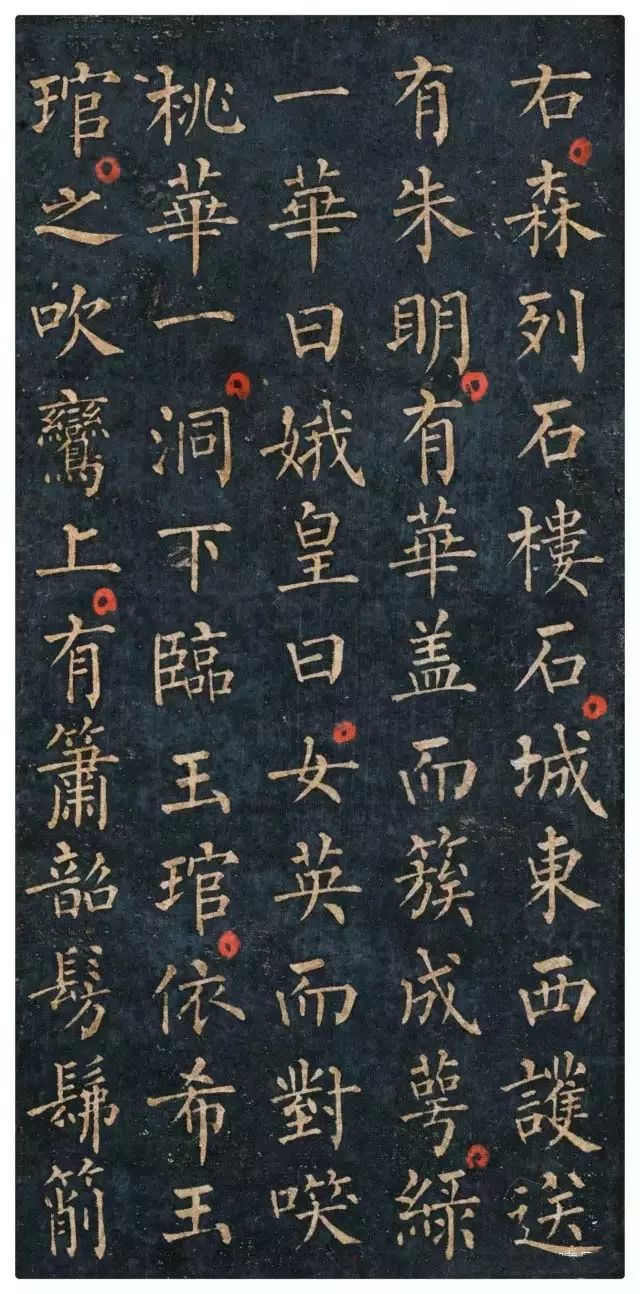 右森列石樓石城東西護送
有朱明有華盖而簇成萼綠
一華曰娥皇曰女英而對㗛
桃華一洞下臨玉琯依希玉
琯之吹鸞上有簫韶髣髴箾